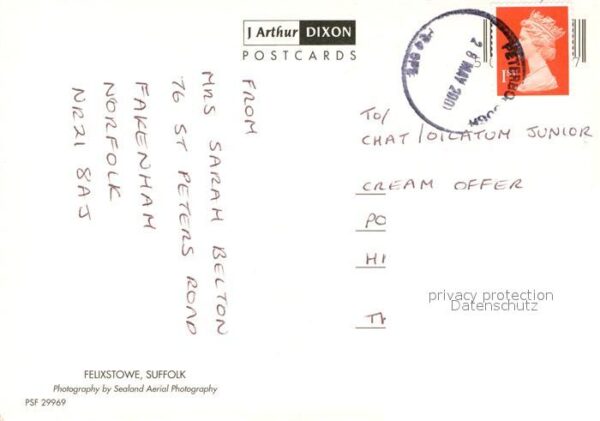 J Arthur DIXON
POSTCARDS
FROM
MRS SARAH BELTON
76 ST PETERS ROAD
FAKENHAM
NORFOLK
NR21 8AJ
28 MAY 200
1ST
TO/
CHAT/OILATUM JUNIOR
CREAM OFFER
PO
HI
TH
privacy protection
Datenschutz
FELIXSTOWE, SUFFOLK
Photography by Sealand Aerial Photography
PSF 29969